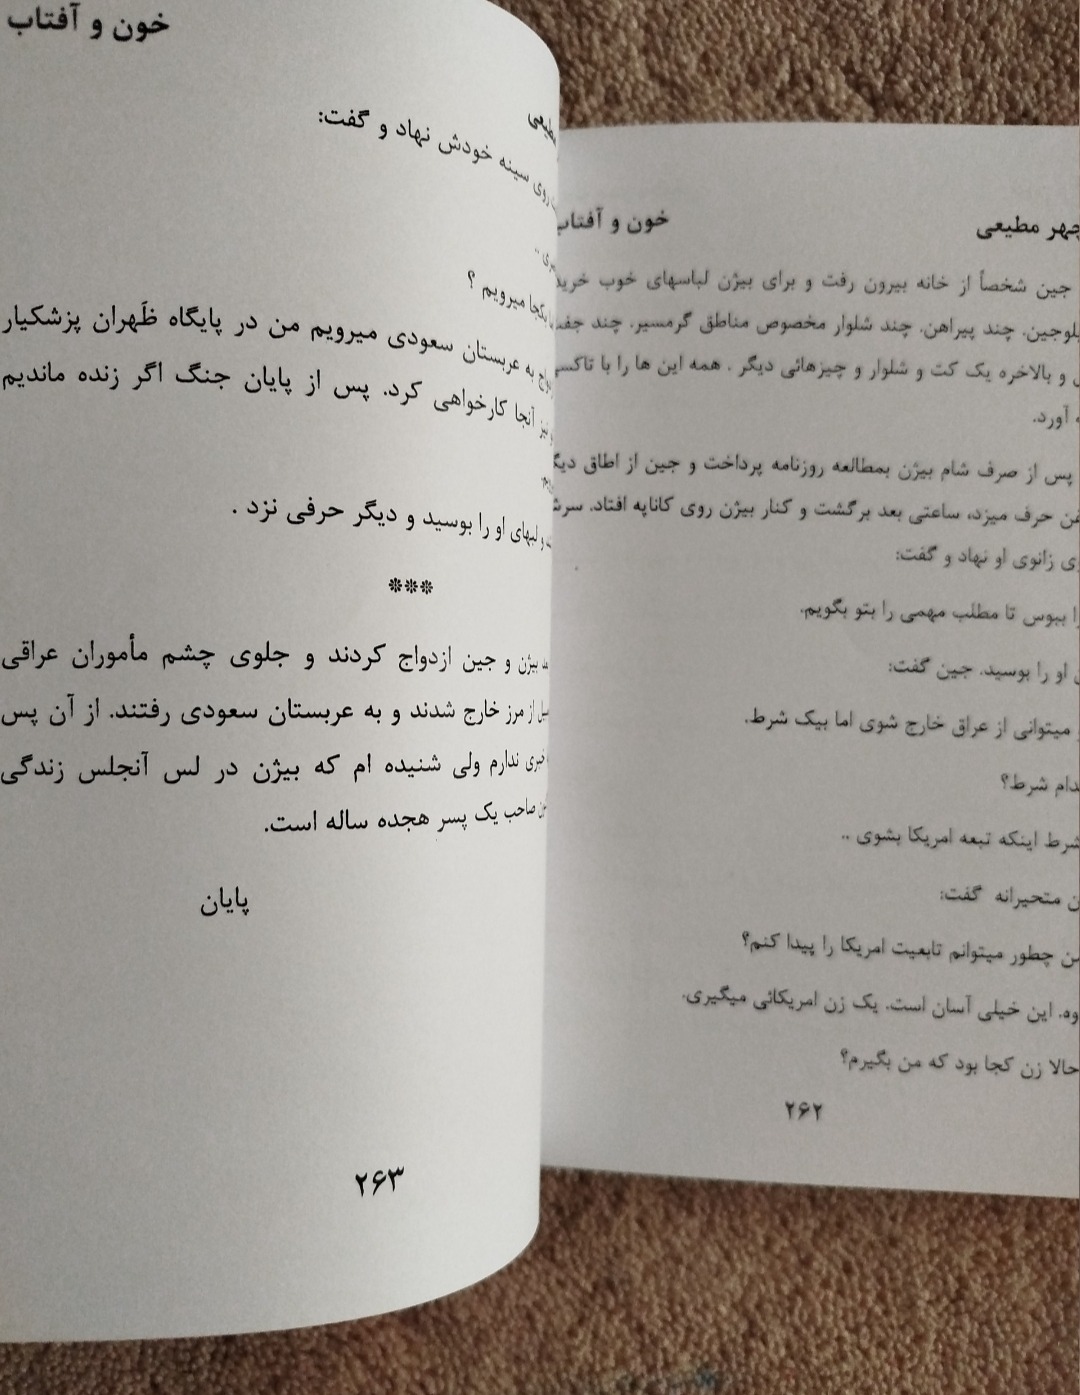 مطیعی
خون و آفتاب
جین شخصاً از خانه بیرون رفت و برای بیژن لباسهای خوب خرید
چند پیراهن. چند شلوار مخصوص مناطق گرمسیر. چند جفت
و بالاخره یک کت و شلوار و چیزهائی دیگر . همه این ها را با تاکسی
آورد.
پس از صرف شام بیژن بمطالعه روزنامه پرداخت و جین از اطاق
حرف میزد، ساعتی بعد برگشت و کنار بیژن روی کاناپه افتاد.
زانوی او نهاد و گفت:
ببوس تا مطلب مهمی را بتو بگویم.
او را بوسید. جین گفت:
میتوانی از عراق خارج شوی اما بیک شرط.
شرط؟
شرط اینکه تبعه امریکا بشوی ..
متحیرانه گفت:
چطور میتوانم تابعیت امریکا را پیدا کنم؟
این خیلی آسان است. یک زن امریکائی میگیری.
حالا زن کجا بود که من بگیرم؟
۲۶۲
خون و آفتاب
روی سینه خودش نهاد و گفت:
کجا میرویم ؟
به عربستان سعودی میرویم من در پایگاه ظَهران پزشکیار
نیز آنجا کارخواهی کرد. پس از پایان جنگ اگر زنده ماندیم
و لبهای او را بوسید و دیگر حرفی نزد .
***
بیژن و جین ازدواج کردند و جلوی چشم مأموران عراقی
از مرز خارج شدند و به عربستان سعودی رفتند. از آن پس
خبری ندارم ولی شنیده ام که بیژن در لس آنجلس زندگی
صاحب یک پسر هجده ساله است.
پایان
۲۶۳